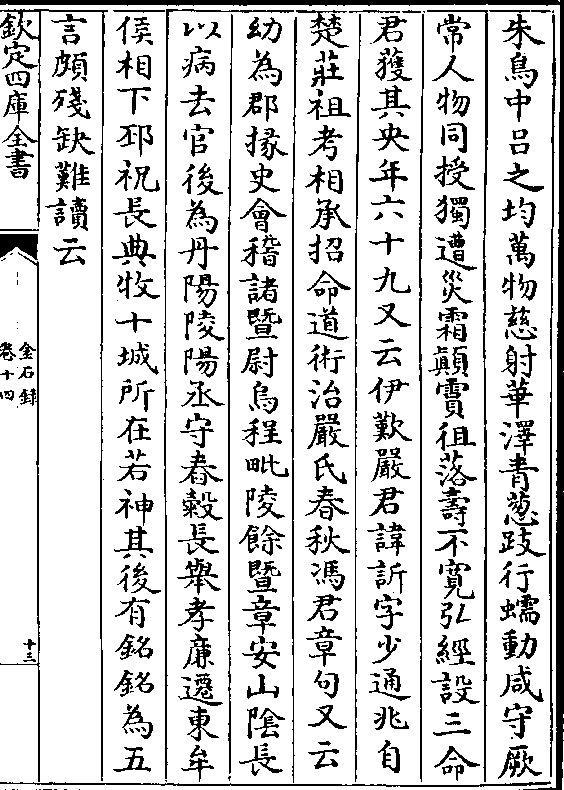 朱鳥中呂之均萬物慈射華澤青蔥跂行蠕動咸守厥
常人物同授獨遭災霜顛霣徂落壽不寬弘經設三命
君獲其央年六十九又云伊歎嚴君諱訢字少通兆自
楚莊祖考相承招命道術治嚴氏春秋馮君章句又云
幼為郡掾史會稽諸暨尉烏程毗陵餘暨章安山陰長
以病去官後為丹陽陵陽丞守舂榖長舉孝廉遷東牟
侯相下邳祝長典牧十城所在若神其後有銘銘為五
言頗殘缺難讀云
欽定四庫全書
金石錄
卷十四
十三